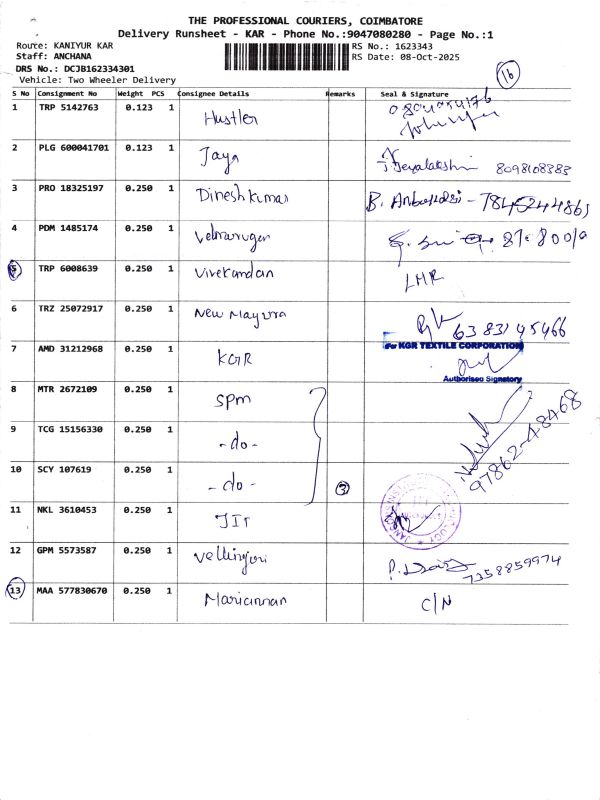 THE PROFESSIONAL COURIERS, COIMBATORE
Delivery Runsheet - KAR - Phone No.:9047080280 - Page No.:1
Route: KANIYUR KAR RS No.: 1623343
Staff: ANCHANA RS Date: 08-Oct-2025
DRS No.: DCJB162334301
Vehicle: Two Wheeler Delivery
16
S No Consignment No Weight PCS Consignee Details Remarks Seal & Signature
1 TRP 5142763 0.123 1 Hustler
2 PLG 600041701 0.123 1 Jaya J Jeyalakshmi 8098108383
3 PRO 18325197 0.250 1 Dineshkumar B. - 7845244865
4 PDM 1485174 0.250 1 Velmurugan
5 TRP 6008639 0.250 1 Vivekandan LHR
6 TRZ 25072917 0.250 1 New Mayura 6383145466
7 AMD 31212968 0.250 1 KGR For KGR TEXTILE CORPORATION
Authorised Signatory
8 MTR 2672109 0.250 1 SPM
9 TCG 15156330 0.250 1 -do- 97862-48468
10 SCY 107619 0.250 1 -do- 3
11 NKL 3610453 0.250 1 JIT
12 GPM 5573587 0.250 1 Vellingiri P. 7358859974
13 MAA 577830670 0.250 1 Mariannan C/N